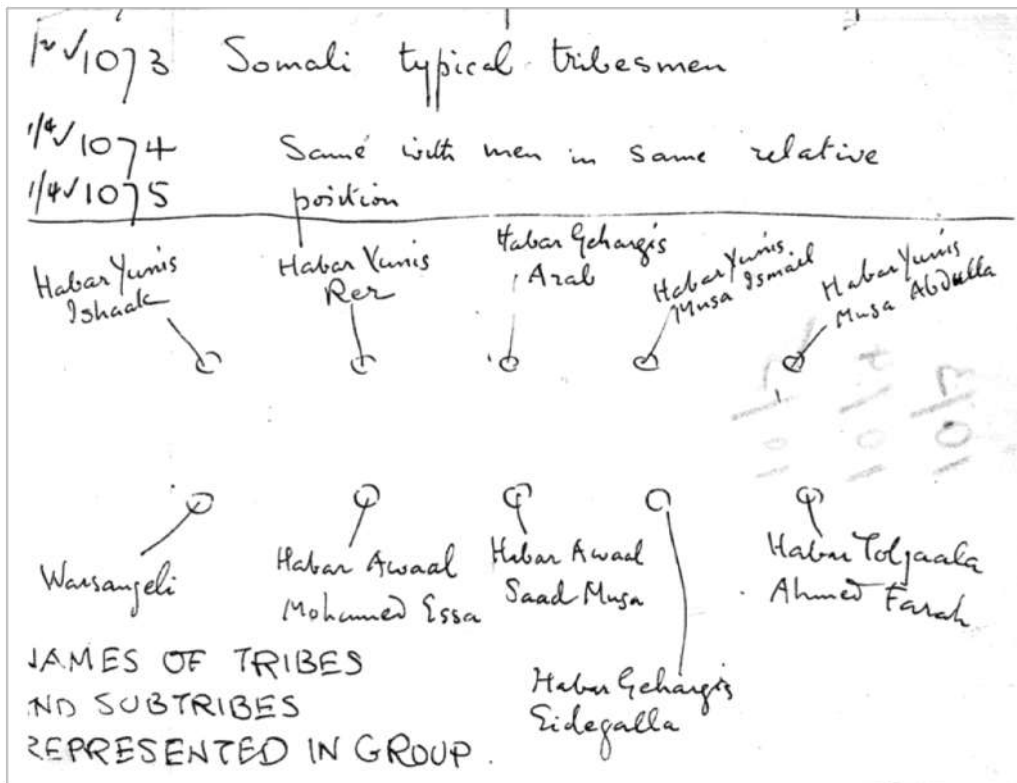 1073 Somali typical tribesmen
1/4✓1074 Same with men in same relative
1/4✓1075 position
Habar Yunis
Ishaak
Habar Yunis
Rer
Habar Gehargis
Arab
Habar Yunis
Musa Ismail
Habar Yunis
Musa Abdulla
Warsangeli
Habar Awaal
Mohamed Essa
Habar Awaal
Saad Musa
Habar Gehargis
Eidegalla
Habar Toljaala
Ahmed Farah
NAMES OF TRIBES
AND SUBTRIBES
REPRESENTED IN GROUP.